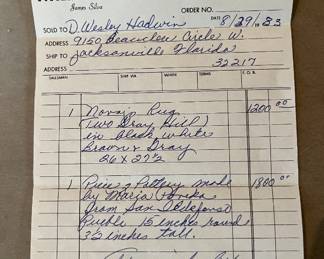 James Silva
ORDER NO.
SOLD TO D. Wesley Hadwin DATE 8/29/1983
ADDRESS 9150 Circle W.
SHIP TO Jacksonville Florida
ADDRESS 32217
SALESMAN SHIP VIA WHEN TERMS F.O.B.
1 Navajo Rug 1200 00
(Two Gray Hill)
in black white
Brown & Gray
26 x 27½
1 Piece of Pottery made 1800 00
by Maria Poveka
from San Ildefonso
Pueblo 15 inches round
32 inches tall.